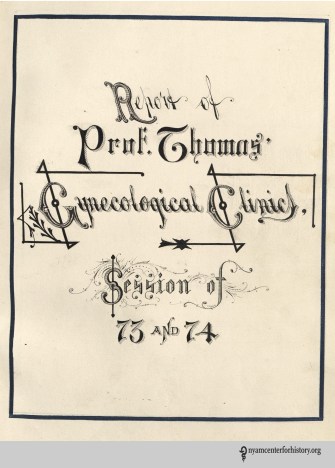 Report of
Prof. Thomas'
Gynecological Clinics,
Session of
73 AND 74
nyamcenterforhistory.org